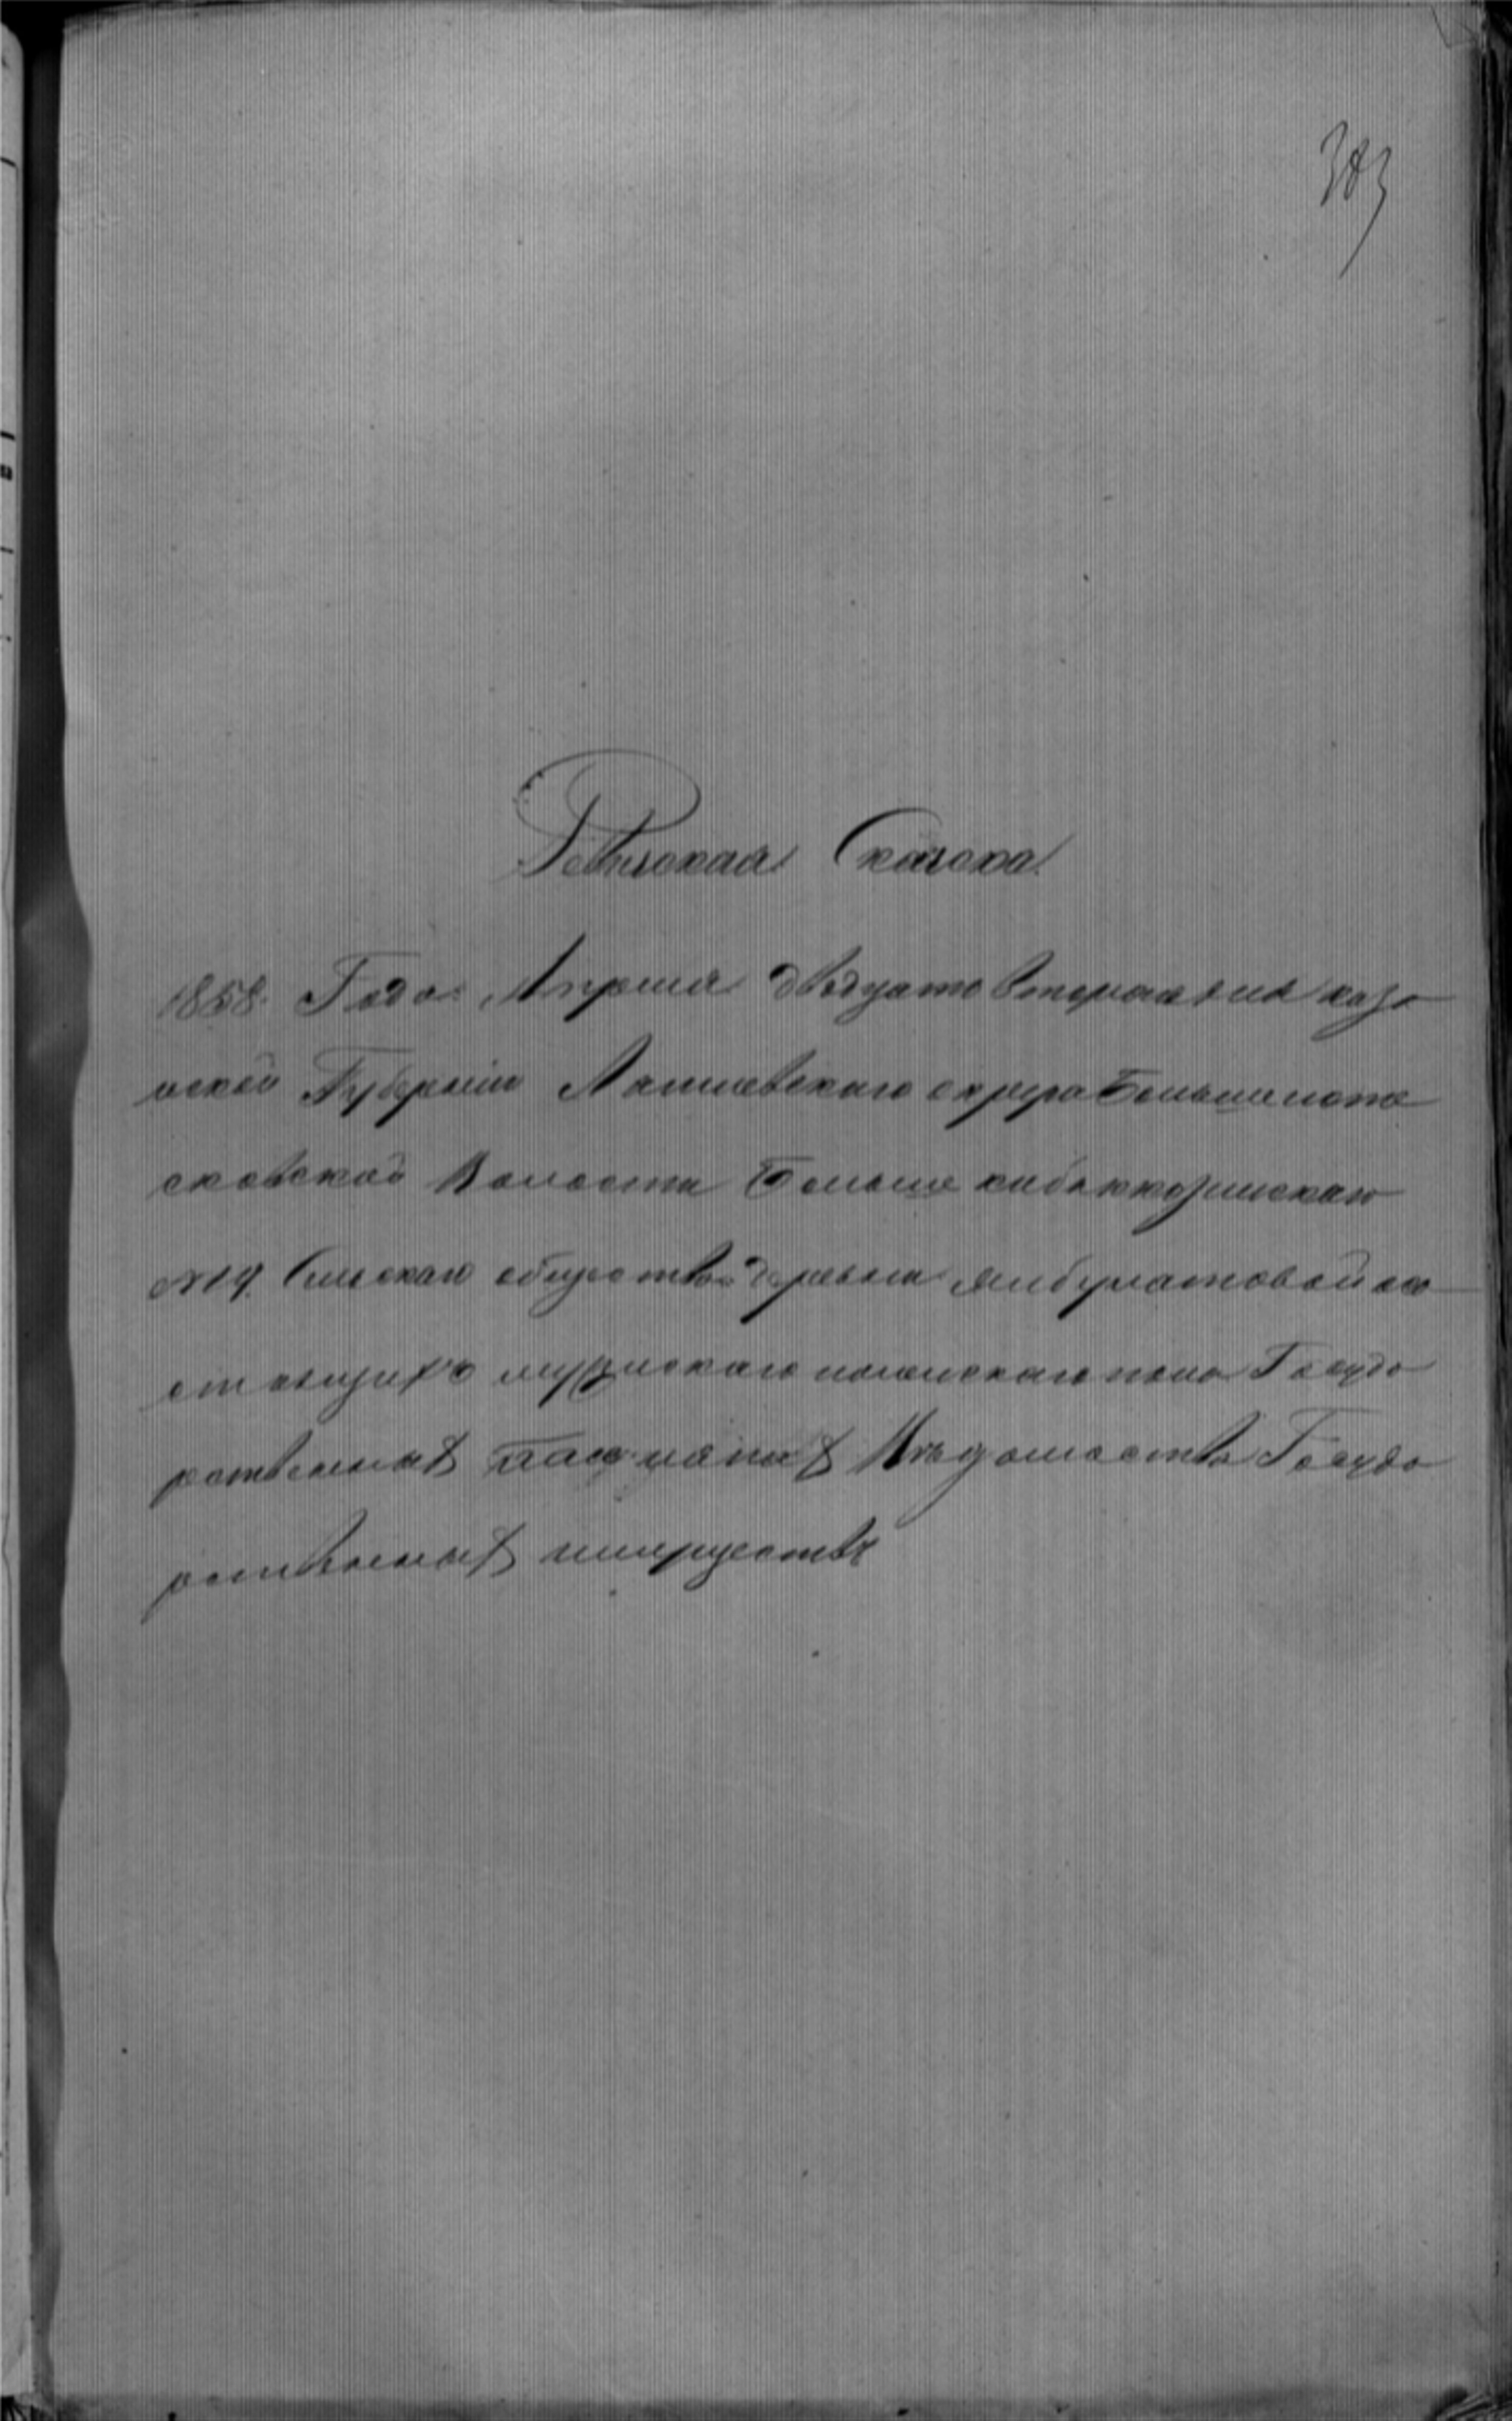 383
Ревизская Сказка
1858 Года Апреля двадцать втораго дня каза
нской Губернiи Лаишевскаго округа Большемета
сковской Волости Больше кибяккозинскаго
№19 Сельскаго общества деревни Янбулатовой со
мужескаго и женскаго пола Госуда
рственныхъ Ведомства Госуда
рственныхъ имуществъ